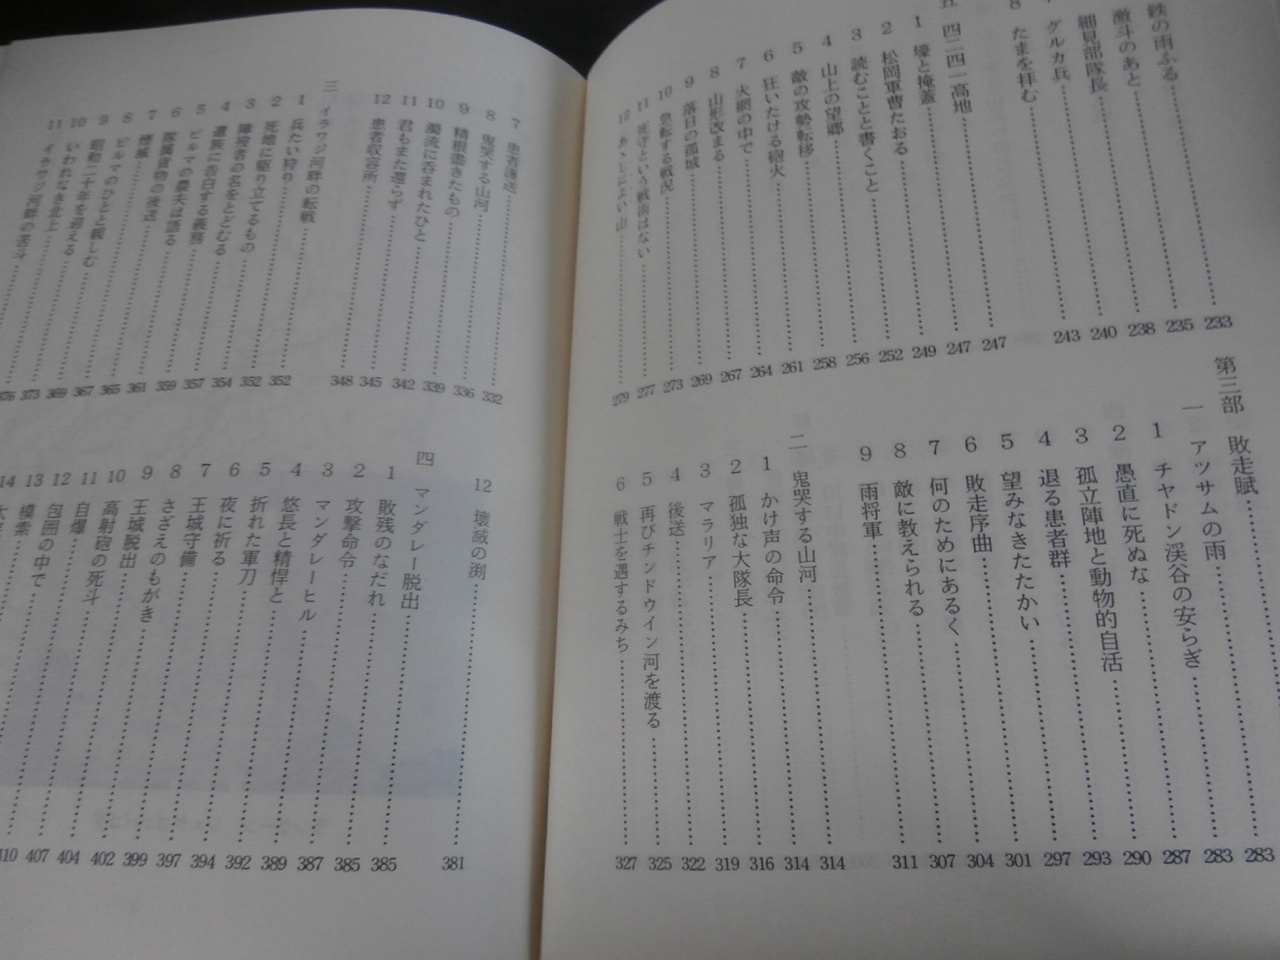 鉄の雨ふる 233
激斗のあと 235
細見部隊長 238
グルカ兵 240
8 たまを拝む 243
五 四二四一高地 247
1 壕と掩蓋 247
2 松岡軍曹たおる 249
3 読むことと書くこと 252
4 山上の望郷 256
5 敵の攻勢転移 258
6 狂いたける砲火 261
7 火網の中で 264
8 山形改まる 267
9 落日の孤城 269
10 急転する戦況 273
11 死けという戦術はない 277
12 あゝしによい山 279
第三部 敗走賦 283
一 アツサムの雨 283
1 チヤドン渓谷の安らぎ 287
2 愚直に死ぬな 290
3 孤立陣地と動物的自活 293
4 退る患者群 297
5 望みなきたたかい 301
6 敗走序曲 304
7 何のためにあるく 307
8 敵に教えられる 311
9 雨将軍
二 鬼哭する山河 314
1 かけ声の命令 314
2 孤独な大隊長 316
3 マラリア 319
4 後送 322
5 再びチンドウイン河を渡る 325
6 戦士を遇するみち 327
7 患者護送 332
8 鬼哭する山河 336
9 精根盡きたもの 339
10 濁流に呑まれたひと 342
11 君もまた還らず 345
12 患者収容所 348
三 イラワジ河群の転戦 352
1 兵たい狩り 352
2 死地に駆り立てるもの 354
3 陣歿者の名をとどむる 357
4 遺族に告白する義務 359
5 ビルマの農夫は語る 361
6 隊属貨物の後送 365
7 標 367
8 ビルマのひとと親しむ 369
9 昭和二十年を迎える 373
10 いわれなき北上 376
11 イラワジ河群の苦斗
12 壊滅の渕 381
四 マンダレー脱出 385
1 敗残のなだれ 385
2 攻撃命令 387
3 マンダレーヒル 389
4 悠長と精悍と 392
5 折れた軍刀 394
6 夜に祈る 397
7 王城守備 399
8 さざえのもがき 402
9 王城脱出 404
10 高射砲の死斗 407
11 自爆 410
12 包囲の中で
13 模索
14